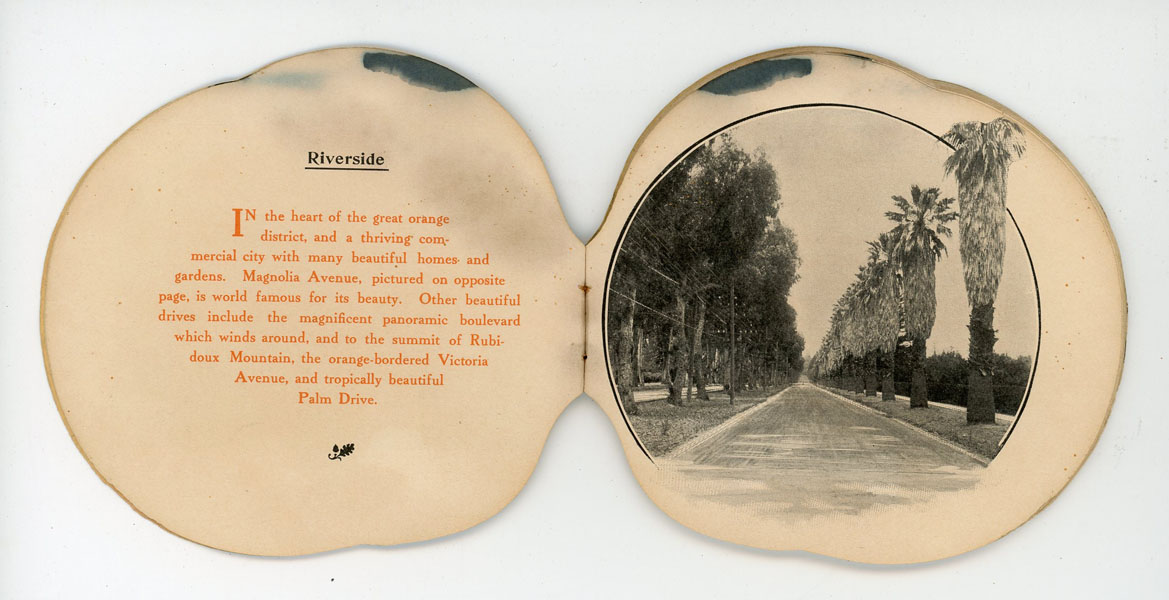 Riverside
IN the heart of the great orange
district, and a thriving com-
mercial city with many beautiful homes and
gardens. Magnolia Avenue, pictured on opposite
page, is world famous for its beauty. Other beautiful
drives include the magnificent panoramic boulevard
which winds around, and to the summit of Rubi-
doux Mountain, the orange-bordered Victoria
Avenue, and tropically beautiful
Palm Drive.